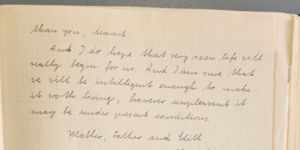 than you, dearest.
And I do hope that very soon life will
really begin for us. And I am sure that
we will be intelligent enough to make
it worth living, however unpleasant it
may be under present conditions.
Mother, Father and Edith